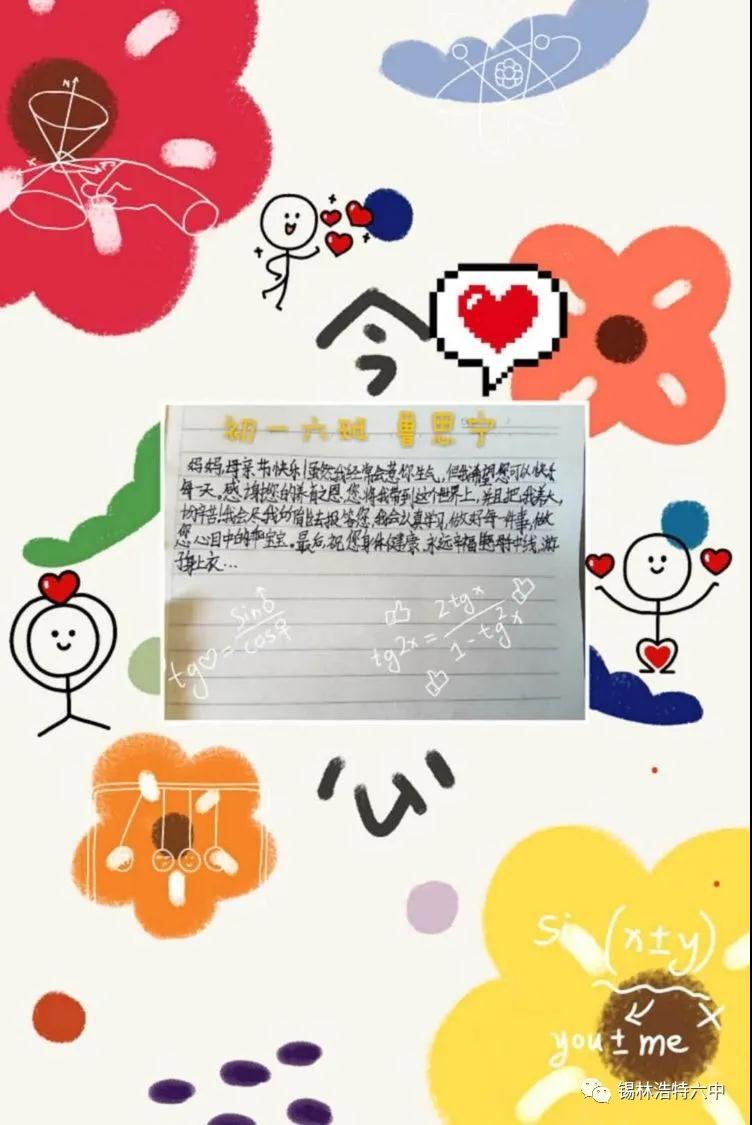 今
初一六班 鲁思宁
妈妈,母亲节快乐!虽然我经常会惹你生气,但我希望您可以快乐
每一天。感谢您的养育之恩,您将我带到这个世界上,并且把我养大,
功辛苦!我会尽我的能去报答您,我会认真学习,做好每一件事,做
您心目中的乖宝宝。最后,祝您身体健康,永远幸福!慈母手中线,游
子身上衣...
tg♡=sin♂/cos♀
tg2x=2tgx/1-tg²x
心
Si (x±y)
you±me
锡林浩特六中